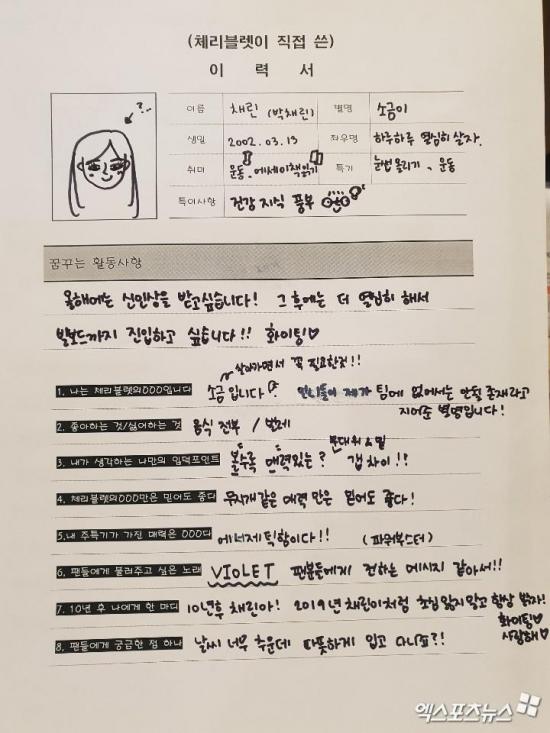 (체리블렛이 직접 쓴)
이 력 서
?..
이름 채린 (박채린) 별명 소금이
생일 2002. 03. 13 좌우명 하루하루 열심히 살자.
취미 운동, 에세이책읽기 특기 눈썹 올리기, 운동
특이사항 건강 지식 풍부
꿈꾸는 활동사항
올해에는 신인상을 받고싶습니다! 그 후에는 더 열심히 해서
빌보드까지 진입하고 싶습니다!! 화이팅♡
살아가면서 꼭 필요한것!!
1. 나는 체리블렛의OOO입니다 소금입니다 언니들이 제가 팀에 없어서는 안될 존재라고
지어준 별명입니다!
2. 좋아하는 것/싫어하는 것 음식 전부 / 벌레
무대 위 & 밑
3. 내가 생각하는 나만의 입덕포인트 볼수록 매력있는? 갭 차이!!
4. 체리블렛의OOO만은 믿어도 좋다 무지개같은 매력 만은 믿어도 좋다!
5.내 주특기가 가진 매력은 OOO다 에너제틱함이다!! (파워부스터)
6. 팬들에게 불러주고 싶은 노래 VIOLET 팬분들에게 전하는 메시지 같아서!!
7. 10년 후 나에게 한 마디 10년후 채린아! 2019년 채린이처럼 초심 잃지 않고 항상 밝자!
화이팅♡
사랑해♡
8. 팬들에게 궁금한 점 하나 날씨 너무 추운데 따뜻하게 입고 다니죠?!
엑스포츠뉴스